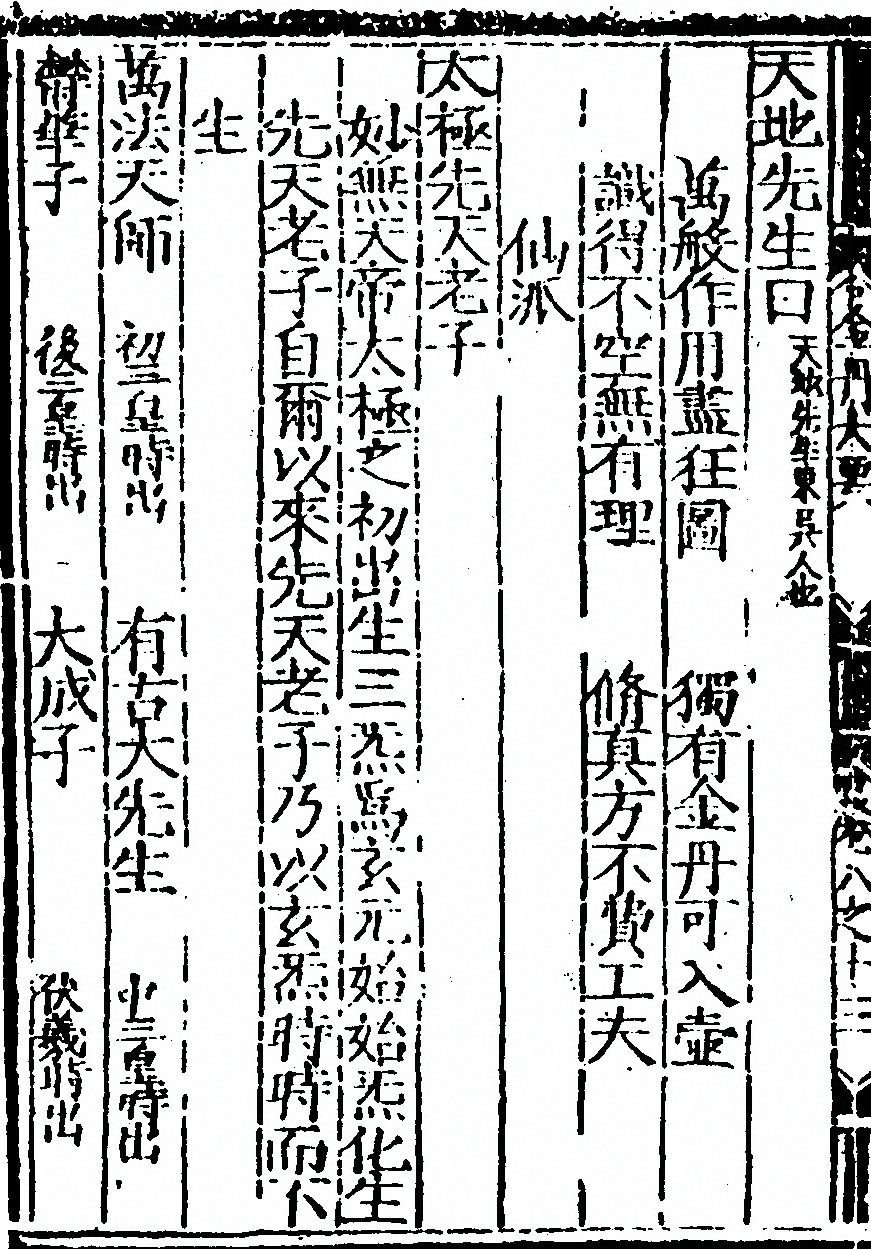 金丹大要 卷八之十三
天地先生曰 天地先生東吳人也
萬般作用盡狂圖 獨有金丹可入壺
識得不空無有理 修真方不費工夫
仙派
太極先天老子
妙無天帝太極之初出生三炁爲玄元始始炁化生
先天老子自爾以來先天老子乃以玄炁時時而下
生
萬法天師 初三皇時出 有古大先生 中三皇時出
欝華子 後三皇時出 大成子 伏羲時出